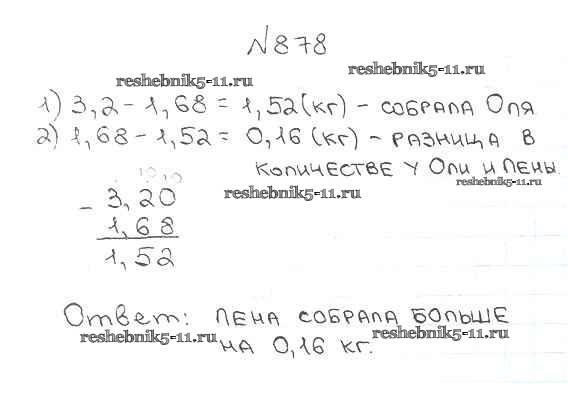 N878
reshebnik5-11.ru
reshebnik5-11.ru
1) 3,2 - 1,68 = 1,52 (кг) - СОБРАЛА ОЛЯ
2) 1,68 - 1,52 = 0,16 (кг) - РАЗНИЦА В
КОЛИЧЕСТВЕ У ОЛИ И ЛЕНЫ.
reshebnik5-11.ru
10 10
- 3,20
reshebnik5-11.ru
1,68
1,52
Ответ: ЛЕНА СОБРАЛА БОЛЬШЕ
reshebnik5-11.ru
НА 0,16 КГ.
reshebnik5-11.ru